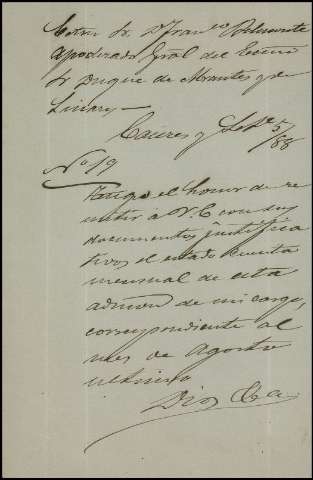 Sr. Dn Franco
Apoderado Gral del Excmo
Sr Duque de Abrantes y de
Linares
Cáceres y Sete 5/88
No 19
Tengo el honor de re
mitir a V. E con sus
documentos justifica
tivos el estado cuenta
mensual de esta
admon de mi cargo,
correspondiente al
mes de Agosto
ultimo
Dios &a